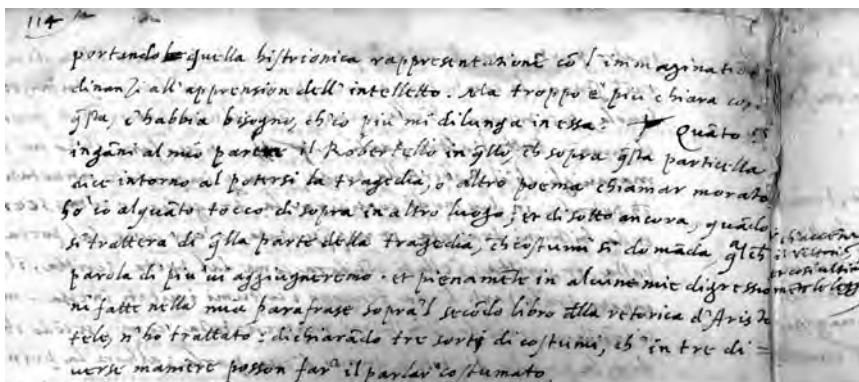 114
portando quella histrionica rappresentatione cō l'immaginatione
dinanzi all'apprension dell'intelletto. Ma troppo è piu chiara cosa
q̄sta, c'habbia bisogno, ch'io piu mi dilunga in essa. Quāto
ingāni al mio parere il Robertello in q̄llo, ch̄ sopra q̄sta particella
dice intorno al potersi la tragedia, o' altro poema chiamar morato
ho' io alquāto tocco di sopra in altro luogo; et di sotto ancora, quādo
si trattera di q̄lla parte della tragedia, ch̄ costumi si domāda, q̄lch̄
parola di piu vi aggiugneremo. et pienamēte in alcune mie digressio
ni fatte nella mia parafrase sopra'l secōdo libro della retorica d'Aristo
tele, n'ho trattato: dichiarādo tre sorti di costumi, ch̄ in tre di=
verse maniere posson far' il parlar' costumato.
ch'accenna
il Vittorio